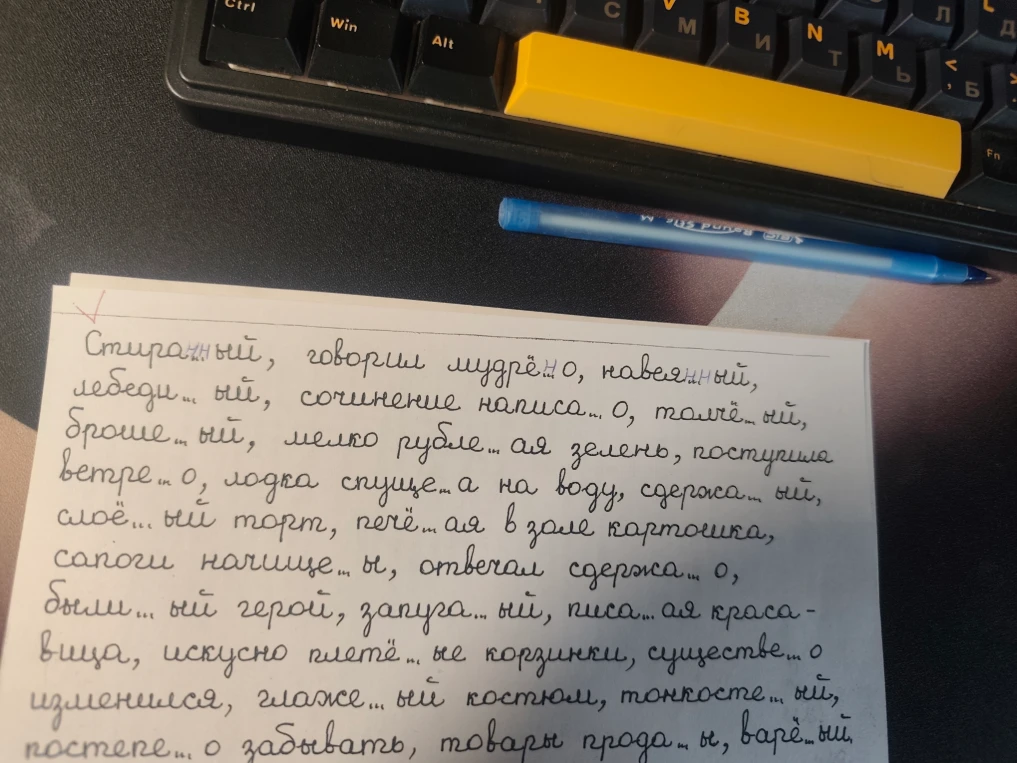 Ctrl
Win
Alt
C
V М
B И
N Т
M Ь
< , Б
Л
L Д
Fn
BIC Round Stic M
Стиранный, говорил мудрёно, навеянный,
лебеди... ый, сочинение написа... о, толчё... ый,
броше... ый, мелко рубле... ая зелень, поступила
ветре... о, лодка спуще... а на воду, сдержа... ый,
слоё... ый торт, печё... ая в золе картошка,
сапоги начище... ы, отвечал сдержа... о,
были... ый герой, запуга... ый, писа... ая краса-
вица, искусно плетё... ые корзинки, существе... о
изменился, глаже... ый костюм, тонкосте... ый,
постепе... о забывать, товары прода... ы, варё... ый